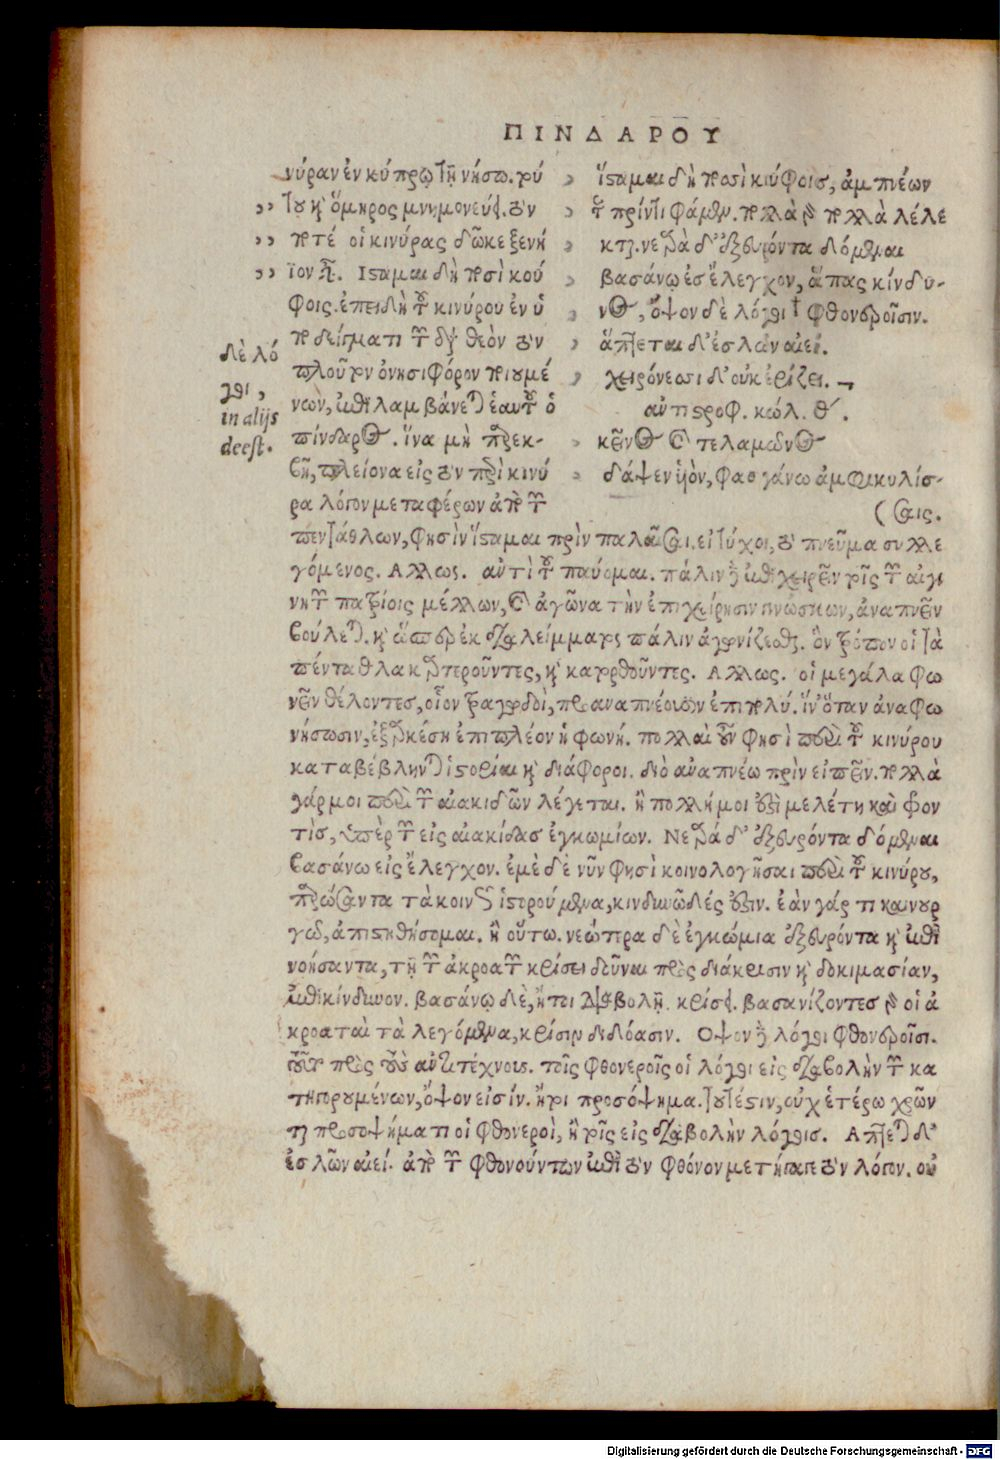 ΠΙΝΔΑΡΟΥ
νύραν ἐν κύπρῳ τῇ νήσῳ. τού
του καὶ ὅμηρος μνημονεύει. τόν
ποτέ οἱ κινύρας δῶκε ξενή
ϊον εἶναι. Ισταμαι δὴ ποσὶ κού
φοις. ἐπειδὴ τοῦ κινύρου ἐν ὑ
ποδείγματι τῶν διὰ θεὸν τὸν
πλοῦτον ὀνησιφόρον ποιουμέ
νων, ἐπιλαμβάνεται ἑαυτοῦ ὁ
πίνδαρος. ἵνα μὴ παρεκ-
βῇ, πλείονα εἰς τὸν περὶ κινύ
ρα λόγον μεταφέρων ἀπὸ τῶν
δὲ λό
γοι,
in alijs
deest.
ἵσταμαι δὴ ποσὶ κούφοις, ἀμπνέων
τε πρίν τι φάμεν. πολλὰ γὰρ πολλᾷ λέλε
κται. νεαρὰ δ' ἐξευρόντα δόμεναι
βασάνῳ ἐς ἔλεγχον, ἅπας κίνδυ-
νος, ὄψον δὲ λόγοι † φθονεροῖσιν.
ἅπτεται δ' ἐσλῶν αἰεί.
χειρόνεσσι δ' οὐκ ἐρίζει.
αὐτιστροφ. κώλ. θ'.
κεῖνος καὶ τελαμῶνος
δάψεν υἱὸν, φασγάνω ἀμφικυλίσ-
(σαις.
πεντάθλων, φησὶν ἵσταμαι πρὶν παλαῖσαι, εἰ τύχοι, τὸ πνεῦμα συλλε
γόμενος. Αλλως. αὐτὶ τοῦ παύομαι. πάλιν δὲ ἐπιχειρεῖν τοῖς τῶν αἰγι
νητῶν πατρίοις μέλλων, καὶ ἀγῶνα τὴν ἐπιχείρησιν γινώσκων, ἀναπνεῖν
βούλεται. καὶ ὥσπερ ἐκ διαλείμματος πάλιν ἀγωνίζεσθαι. ὃν τρόπον οἱ τὰ
πένταθλα καρτεροῦντες, καὶ κατορθοῦντες. Αλλως. οἱ μεγάλα φω
νεῖν θέλοντες, οἷον τραγωδοὶ, προαναπνέουσιν ἐπιπολύ. ἵν' ὅταν ἀναφω
νήσωσιν, ἐξαρκέσῃ ἐπιπλέον ἡ φωνή. πολλαὶ οὖν φησὶ περὶ τοῦ κινύρου
καταβέβληνται ἱστορίαι καὶ διάφοροι. διὸ ἀναπνέω πρὶν εἰπεῖν. πολλὰ
γάρ μοι περὶ τῶν αἰακιδῶν λέγεται. ἢ πολλή μοι ἐστὶ μελέτη καὶ φον
τὶς, ὑπὲρ τῶν εἰς αἰακίδας ἐγκωμίων. Νεαρά δ' ἐξευρόντα δόμεναι
βασάνω εἰς ἔλεγχον. ἐμὲ δὲ νῦν φησὶ κοινολογῆσαι περὶ τοῦ κινύρου,
παρεάσαντα τὰ κοινῶς ἱστορούμενα, κινδυνῶδές ἐστιν. ἐὰν γάρ τι καινουρ
γῶ, ἀπιστηθήσομαι. ἢ οὕτω. νεώτερα δὲ ἐγκώμια ἐξευρόντα καὶ ἐπι
νοήσαντα, τῇ τῶν ἀκροατῶν κρίσει δοῦναι πρὸς διάκρισιν καὶ δοκιμασίαν,
ἐπικίνδυνον. βασάνῳ δὲ, ἤτοι διαβολῇ. κρίσει. βασανίζοντες γὰρ οἱ ἀ
κροαταὶ τὰ λεγόμενα, κρίσιν διδόασιν. Οψον δὲ λόγοι φθονεροῖσι.
τοῦτο πρὸς τοὺς αὐτοτέχνους. τοῖς φθονεροῖς οἱ λόγοι εἰς διαβολὴν τῶν κα
τηγορουμένων, ὄψον εἰσίν. ἤτοι προσόψημα. τουτέστιν, οὐχ ἑτέρω χρῶν
ται προσοψήματι οἱ φθονεροὶ, ἢ τοῖς εἰς διαβολὴν λόγοις. Απτεται δ'
ἐσλῶν αἰεί. ἀπὸ τῶν φθονούντων ἐπὶ τὸν φθόνον μετήγαγε τὸν λόγον. οὐ
Digitalisierung gefördert durch die Deutsche Forschungsgemeinschaft - DFG